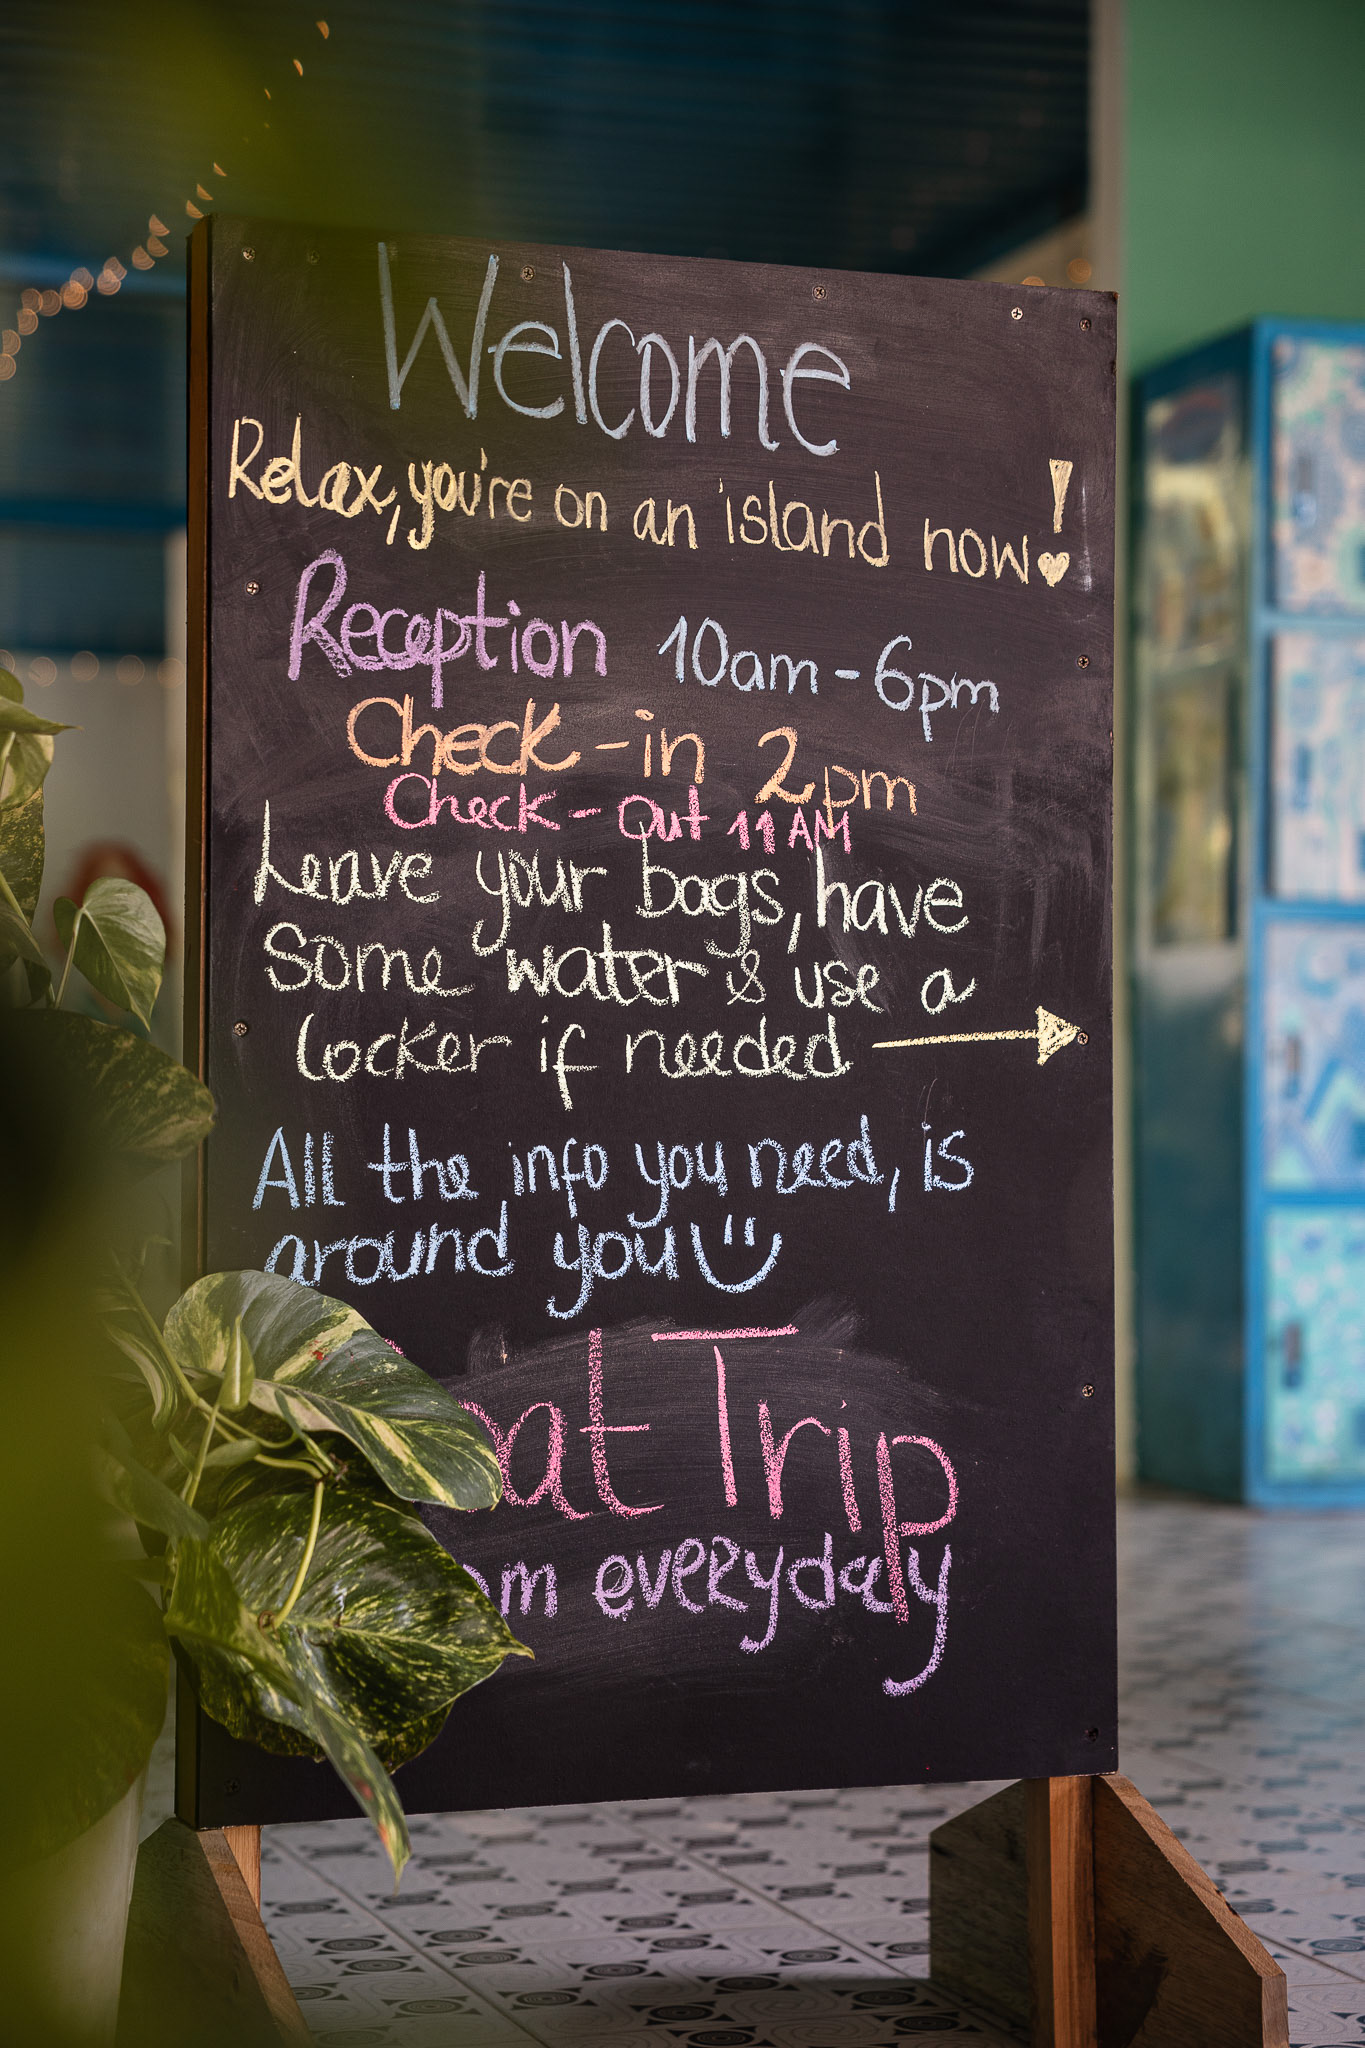 Welcome
Relax, you're on an island now!
Reception 10am - 6pm
Check-in 2pm
Check-Out 11AM
Leave your bags, have
some water & use a
locker if needed
All the info you need, is
around you
Trip
everyday